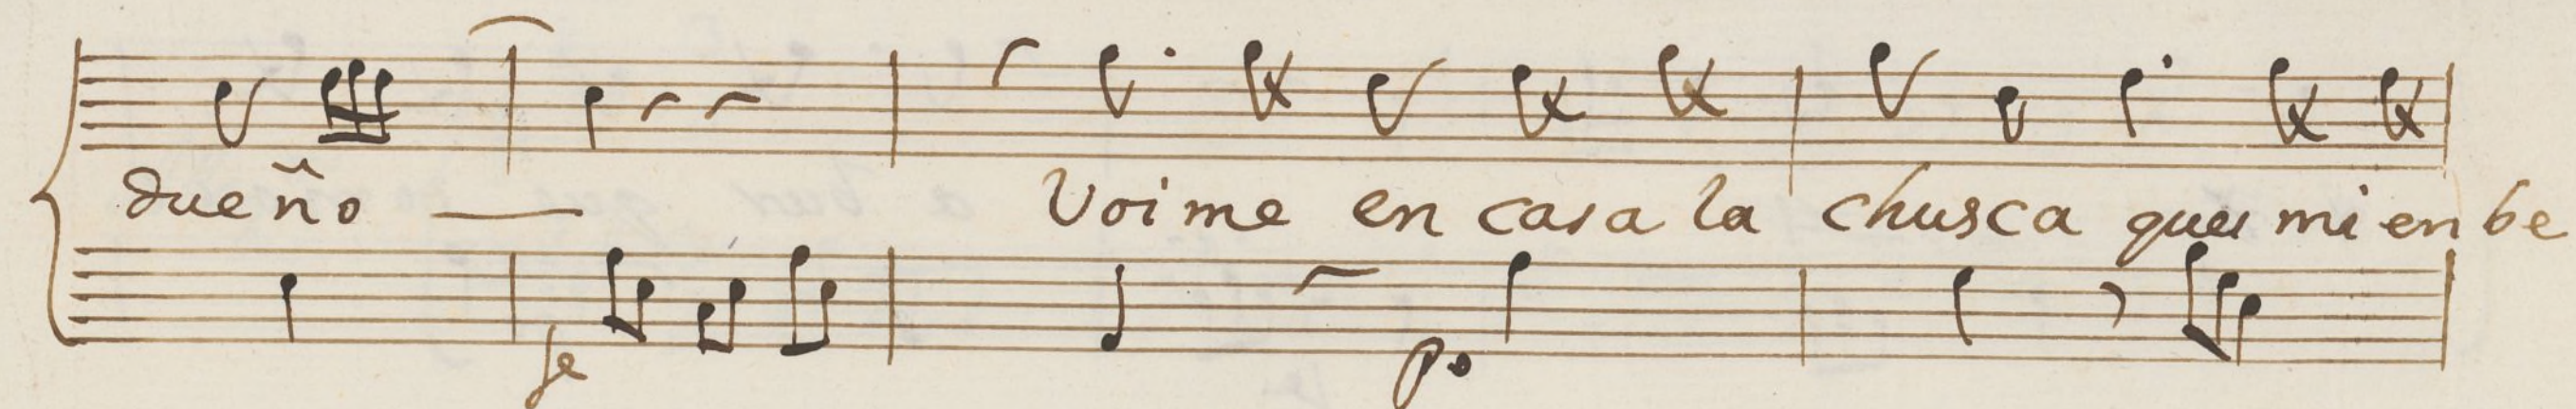 dueño Voime en casa la chusca ques mi enbe
fe po